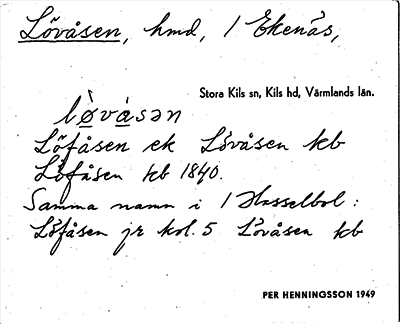 Lövåsen, hmd, / Ekenäs,
Stora Kils sn, Kils hd, Värmlands län.
lø̀vasən
Löfåsen ek Lövåsen kb
Löfåsen kb 1840.
Samma namn i / Hasselbol:
Löfåsen jr kol. 5 Lövåsen kb
PER HENNINGSSON 1949